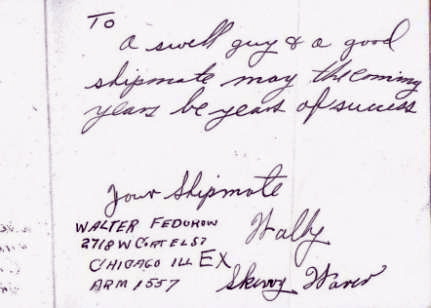 To
a swell guy & a good
shipmate may the coming
years be years of success
Your Shipmate
Wally
WALTER FEDOROW
2718 W CORTEL ST
CHICAGO ILL EX
ARM 1557